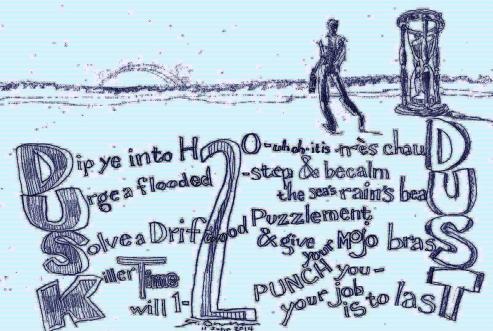 Dip ye into H2O-uh oh-it is très chauD
Urge a flooded 2-step & becalm
the sea's rain's beaU
Solve a Driftwood Puzzlement
& give your Mojo brasS
Killer Time
will 1-2 PUNCH you-
your job is to lasT
11 June 2014